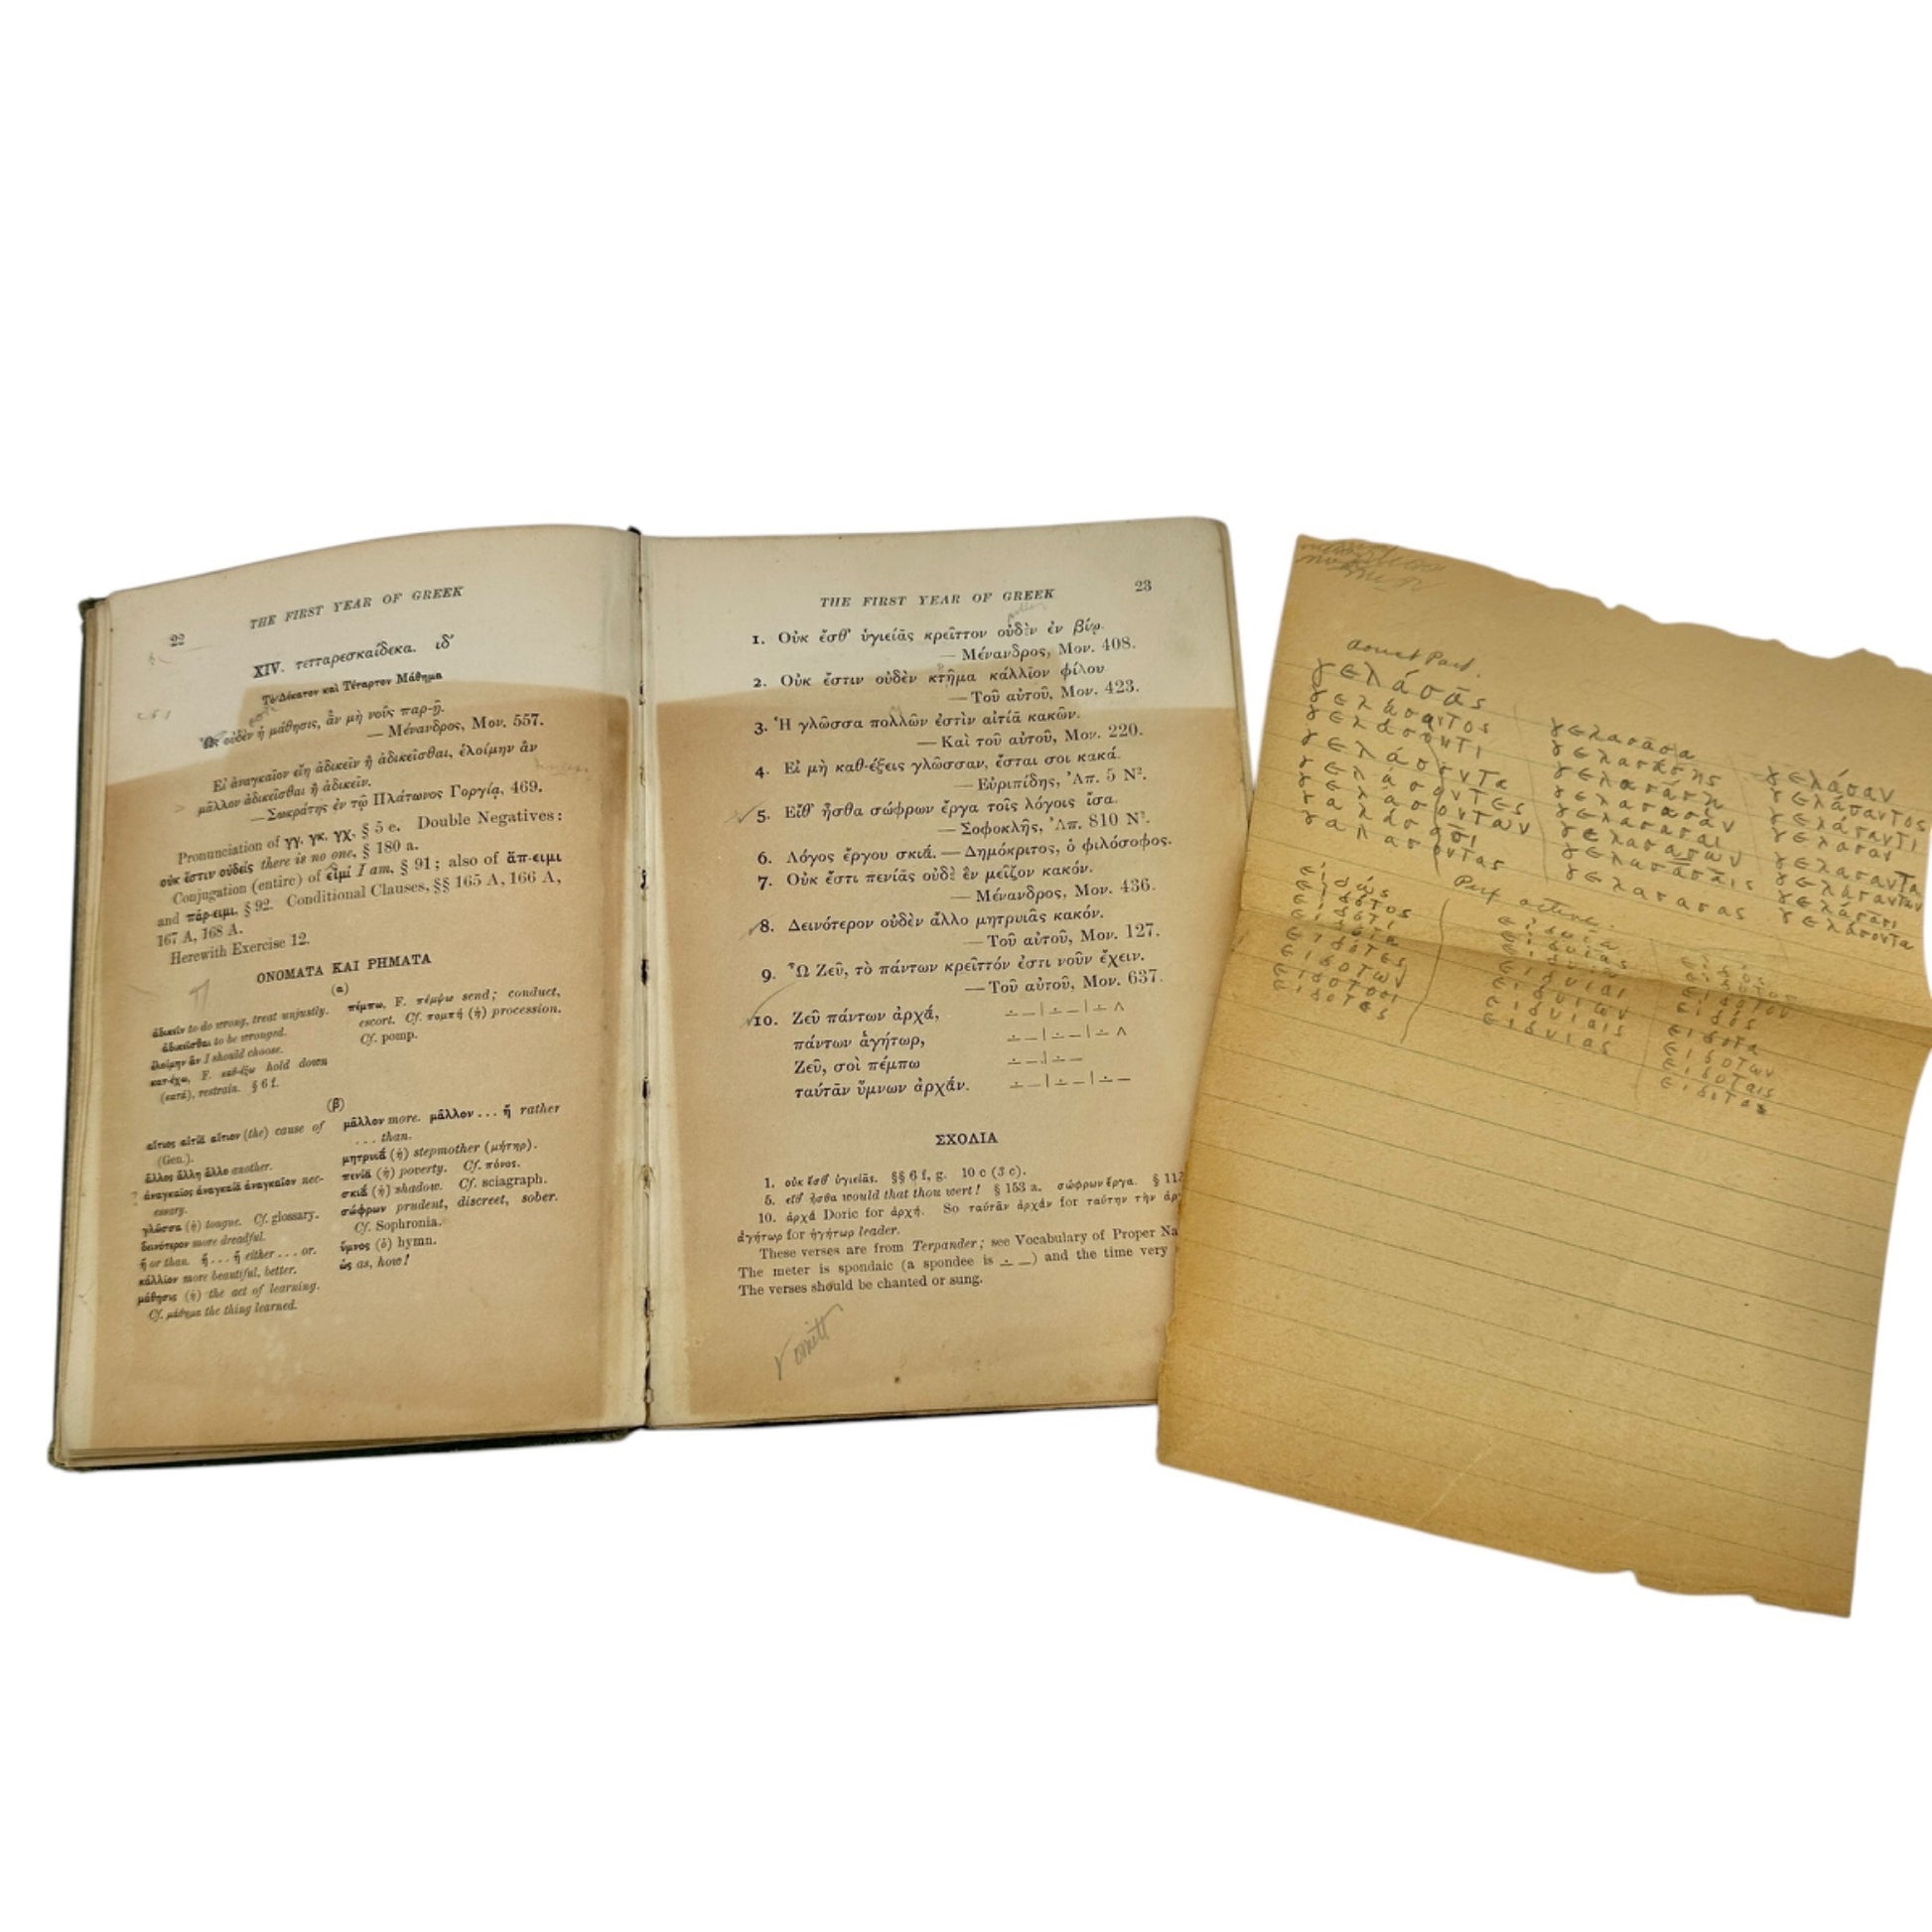 22
THE FIRST YEAR OF GREEK
XIV. τετταρεσκαίδεκα. ιδ′
Τὸ Δέκατον καὶ Τέταρτον Μάθημα
Ὡς οὐδὲν ἡ μάθησις, ἂν μὴ νοῦς παρ-ῇ.
— Μένανδρος, Μον. 557.
Εἰ ἀναγκαῖον εἴη ἀδικεῖν ἢ ἀδικεῖσθαι, ἑλοίμην ἂν
μᾶλλον ἀδικεῖσθαι ἢ ἀδικεῖν.
— Σωκράτης ἐν τῷ Πλάτωνος Γοργίᾳ, 469.
Pronunciation of γγ, γκ, γχ, § 5 e. Double Negatives:
οὐκ ἔστιν οὐδείς there is no one, § 180 a.
Conjugation (entire) of εἰμί I am, § 91; also of ἄπ-ειμι
and πάρ-ειμι, § 92. Conditional Clauses, §§ 165 A, 166 A,
167 A, 168 A.
Herewith Exercise 12.
ΟΝΟΜΑΤΑ ΚΑΙ ΡΗΜΑΤΑ
(α)
ἀδικεῖν to do wrong, treat unjustly.
ἀδικεῖσθαι to be wronged.
ἑλοίμην ἄν I should choose.
κατ-έχω, F. καθ-έξω hold down
(κατά), restrain. § 6 f.
πέμπω, F. πέμψω send; conduct,
escort. Cf. πομπή (ἡ) procession.
Cf. pomp.
(β)
αἴτιος αἰτίᾱ αἴτιον (the) cause of
(Gen.).
ἄλλος ἄλλη ἄλλο another.
ἀναγκαῖος ἀναγκαίᾱ ἀναγκαῖον nec-
essary.
γλῶσσα (ἡ) tongue. Cf. glossary.
δεινότερον more dreadful.
ἤ or than. ἤ . . . ἤ either . . . or.
κάλλῑον more beautiful, better.
μάθησις (ἡ) the act of learning.
Cf. μάθημα the thing learned.
μᾶλλον more. μᾶλλον . . . ἤ rather
. . . than.
μητρυιᾱ́ (ἡ) stepmother (μήτηρ).
πενίᾱ (ἡ) poverty. Cf. πόνος.
σκιᾱ́ (ἡ) shadow. Cf. sciagraph.
σώφρων prudent, discreet, sober.
Cf. Sophronia.
ὕμνος (ὁ) hymn.
ὡς as, how!
THE FIRST YEAR OF GREEK
23
1. Οὐκ ἔσθ᾽ ὑγιείᾱς κρεῖττον οὐδὲν ἐν βίῳ.
— Μένανδρος, Μον. 408.
2. Οὐκ ἔστιν οὐδὲν κτῆμα κάλλῑον φίλου
— Τοῦ αὐτοῦ, Μον. 423.
3. Ἡ γλῶσσα πολλῶν ἐστὶν αἰτίᾱ κακῶν.
— Καὶ τοῦ αὐτοῦ, Μον. 220.
4. Εἰ μὴ καθ-έξεις γλῶσσαν, ἔσται σοι κακά.
— Εὐριπίδης, Ἀπ. 5 Ν².
5. Εἴθ᾽ ἦσθα σώφρων ἔργα τοῖς λόγοις ἴσα.
— Σοφοκλῆς, Ἀπ. 810 Ν².
6. Λόγος ἔργου σκιᾱ́. — Δημόκριτος, ὁ φιλόσοφος.
7. Οὐκ ἔστι πενίᾱς οὐδὲ ἓν μεῖζον κακόν.
— Μένανδρος, Μον. 436.
8. Δεινότερον οὐδὲν ἄλλο μητρυιᾶς κακόν.
— Τοῦ αὐτοῦ, Μον. 127.
9. Ὦ Ζεῦ, τὸ πάντων κρεῖττόν ἐστι νοῦν ἔχειν.
— Τοῦ αὐτοῦ, Μον. 637.
10. Ζεῦ πάντων ἀρχᾱ́,
πάντων ἁγήτωρ,
Ζεῦ, σοὶ πέμπω
ταύτᾱν ὕμνων ἀρχᾱ́ν.
ΣΧΟΛΙΑ
1. οὐκ ἔσθ᾽ ὑγιείᾱς. §§ 6 f, g. 10 c (3 c).
5. εἴθ᾽ ἦσθα would that thou wert! § 153 a. σώφρων ἔργα. §
10. ἀρχᾱ́ Doric for ἀρχή. So ταύτᾱν ἀρχᾱ́ν for ταύτην τὴν
ἁγήτωρ for ἡγήτωρ leader.
These verses are from Terpander; see Vocabulary of Proper
The meter is spondaic (a spondee is _ _) and the time very
The verses should be chanted or sung.
omitt
aorist Part.
γελάσᾱς
γελάσαντος
γελάσαντι
γελάσαντα
γελάσαντες
γελασᾶσα
γελασάσης
γελασάσῃ
γελάσαν
γελάσαντος
γελάσαντι
Perf active.
εἰδώς
εἰδότος
εἰδότι
εἰδότα
εἰδότες
εἰδυῖα
εἰδυίας